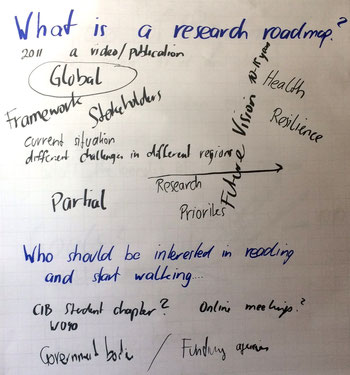 What is a research roadmap?
2011 a video/publication
Global
Framework
Stakeholders
Future Vision 10-15 years
Health
Resilience
current situation
different challenges in different regions
Research
Priorites
Partial
Who should be interested in reading
and start walking...
CIB Student chapter?
Online meetings?
Government bodie / Funding agencies